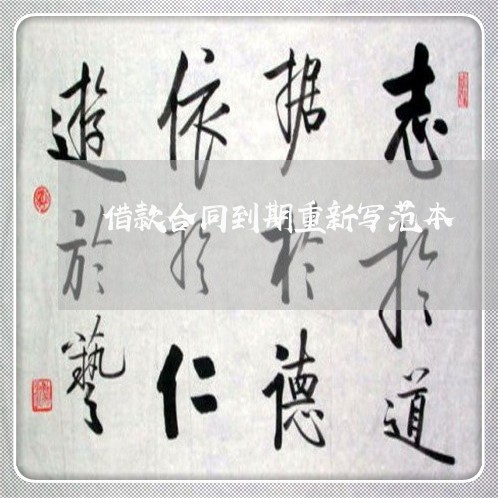 志於道
据於德
依於仁
遊於藝
借款合同到期重新写范本